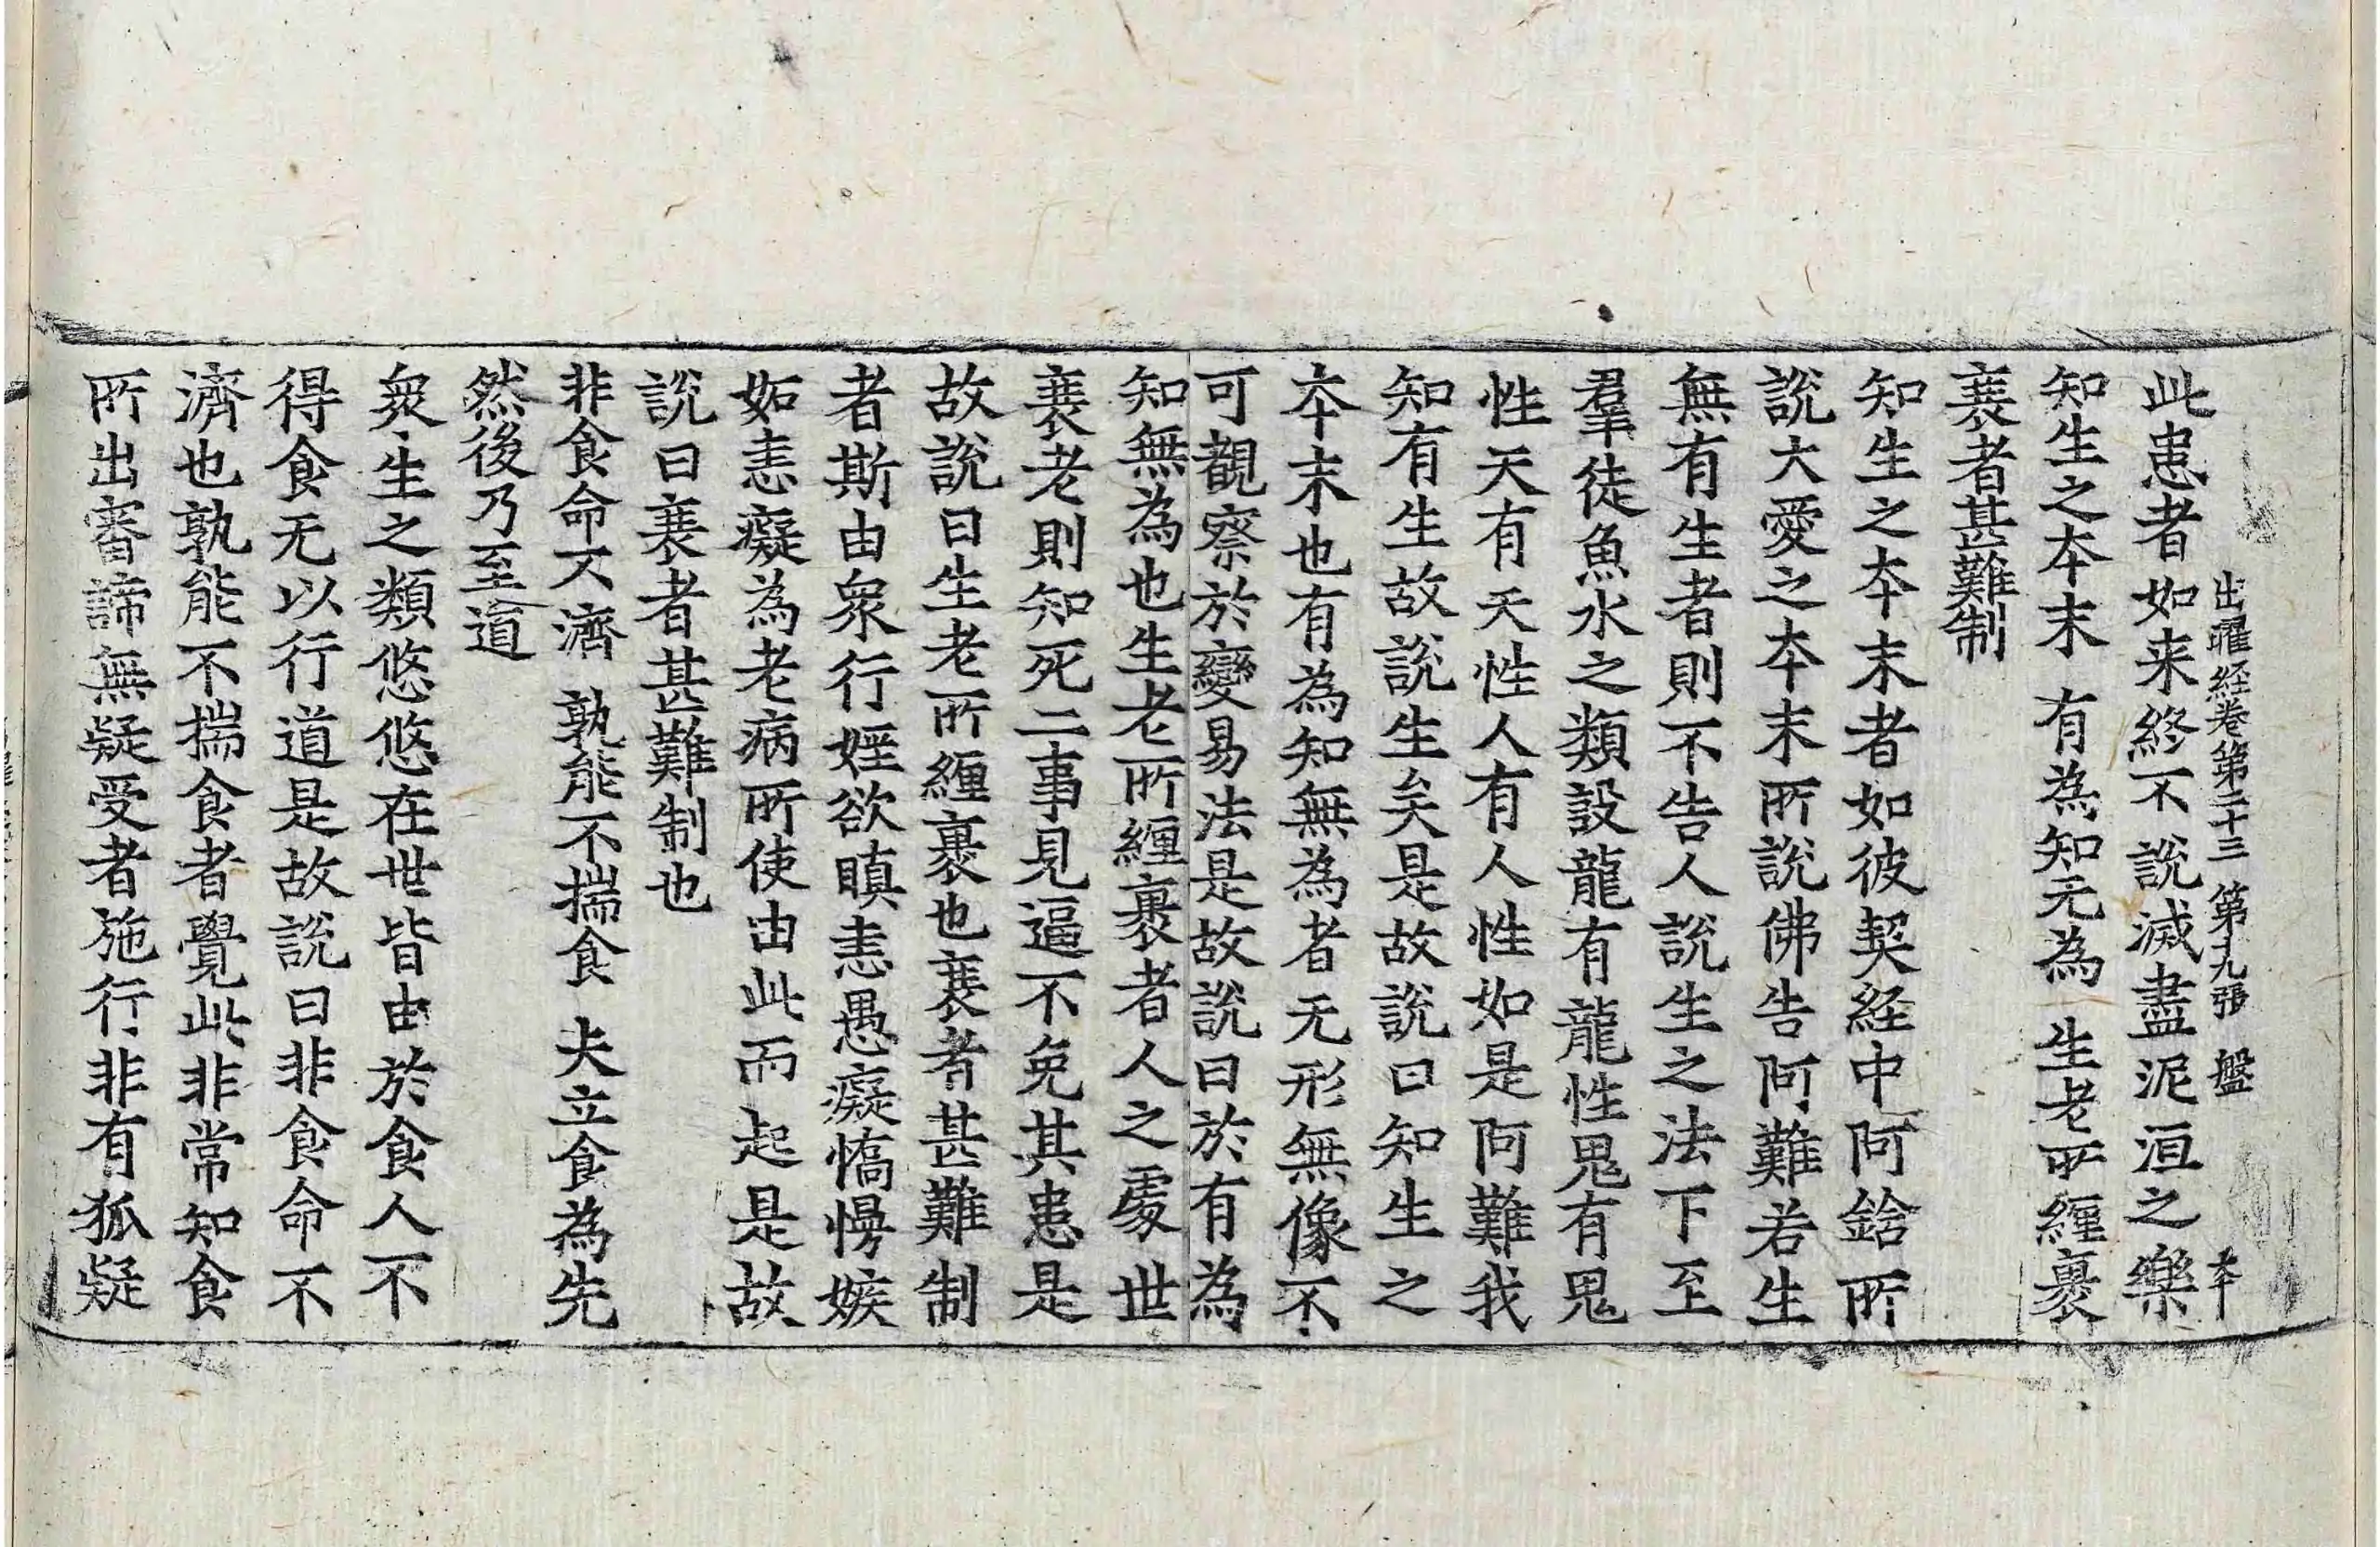 此患者如来終不說滅盡泥洹之樂
出曜経卷第二十三 第九張 盤 本
知生之夲末 有為知无為 生老所纏褁
衰者甚難制
知生之夲末者如彼契経中阿鋡所
說大愛之夲末所說佛告阿難若生
無有生者則不告人說生之法下至
羣徒魚水之類設龍有龍性鬼有鬼
性天有天性人有人性如是阿難我
知有生故說生矣是故說曰知生之
夲末也有為知無為者无形無像不
可觀察於變易法是故說曰於有為
知無為也生老所纏褁者人之處世
衰老則知死二事見逼不免其患是
故說曰生老所纏褁也衰者甚難制
者斯由衆行婬欲瞋恚愚癡憍慢嫉
如恚癡為老病所使由此而起是故
說曰衰者甚難制也
非食命不濟 孰能不揣食 夫立食為先
然後乃至道
衆生之類悠悠在世皆由於食人不
得食无以行道是故說曰非食命不
濟也孰能不揣食者覺此非常知食
所出審諦無疑受者施行非有狐疑